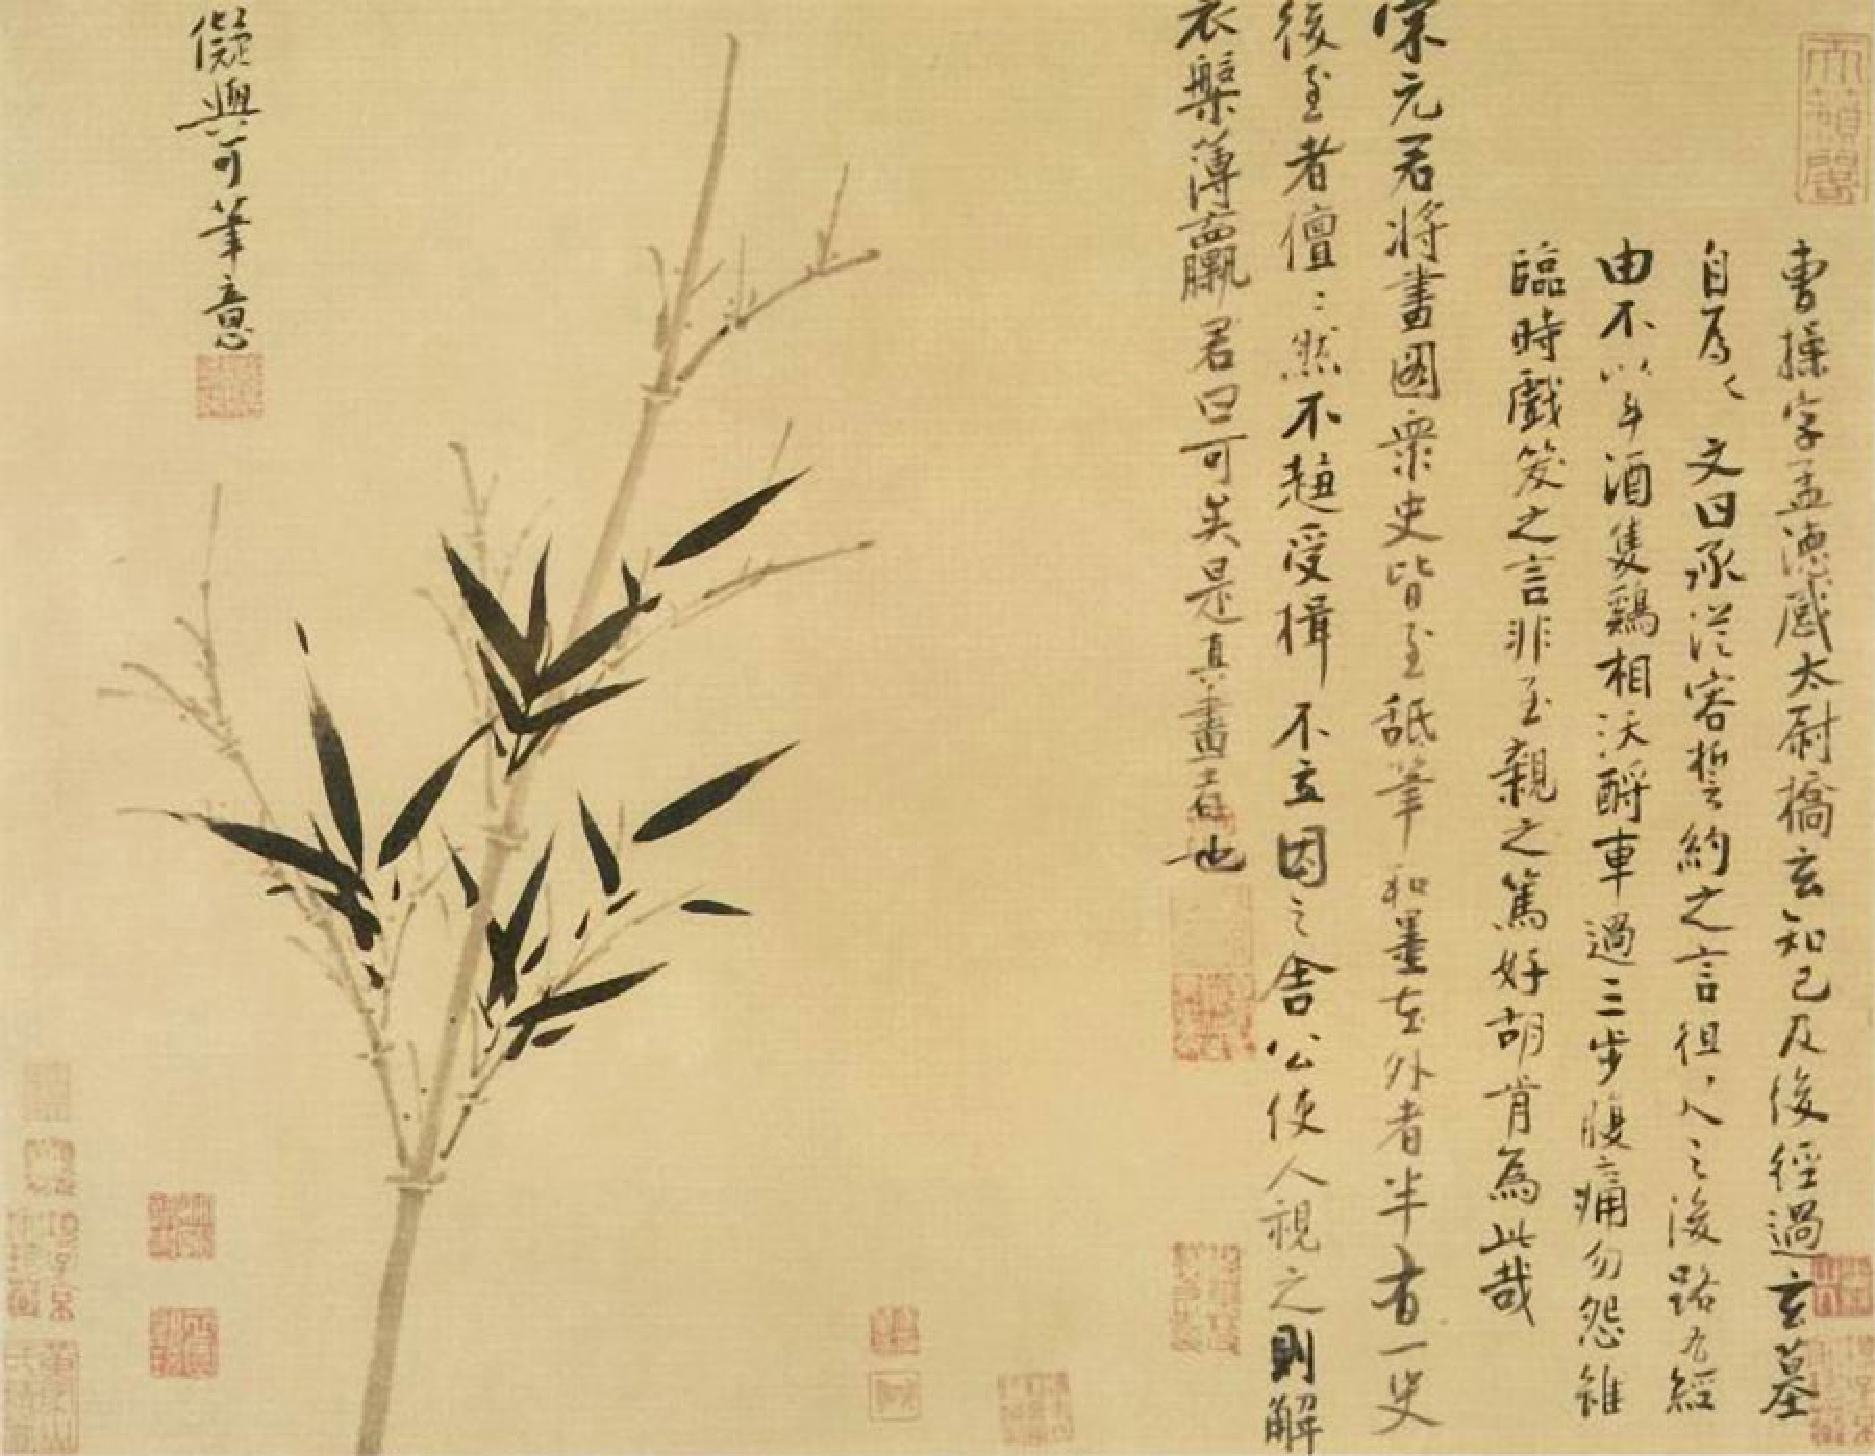 曹操字孟德感太尉橋玄知己及後經過玄墓
自為之文曰承從容誓約之言徂〻之後路有經
由不以斗酒隻鷄相沃酹車過三步腹痛勿怨雖
臨時戲笑之言非至親之篤好胡肯為此哉
宋元君將畫圖衆史皆至舐筆和墨在外者半有一史
後至者儃〻然不趨受揖不立因之舍公使人視之則解
衣槃薄臝君曰可矣是真畫者也
儗與可筆意
天籟閣